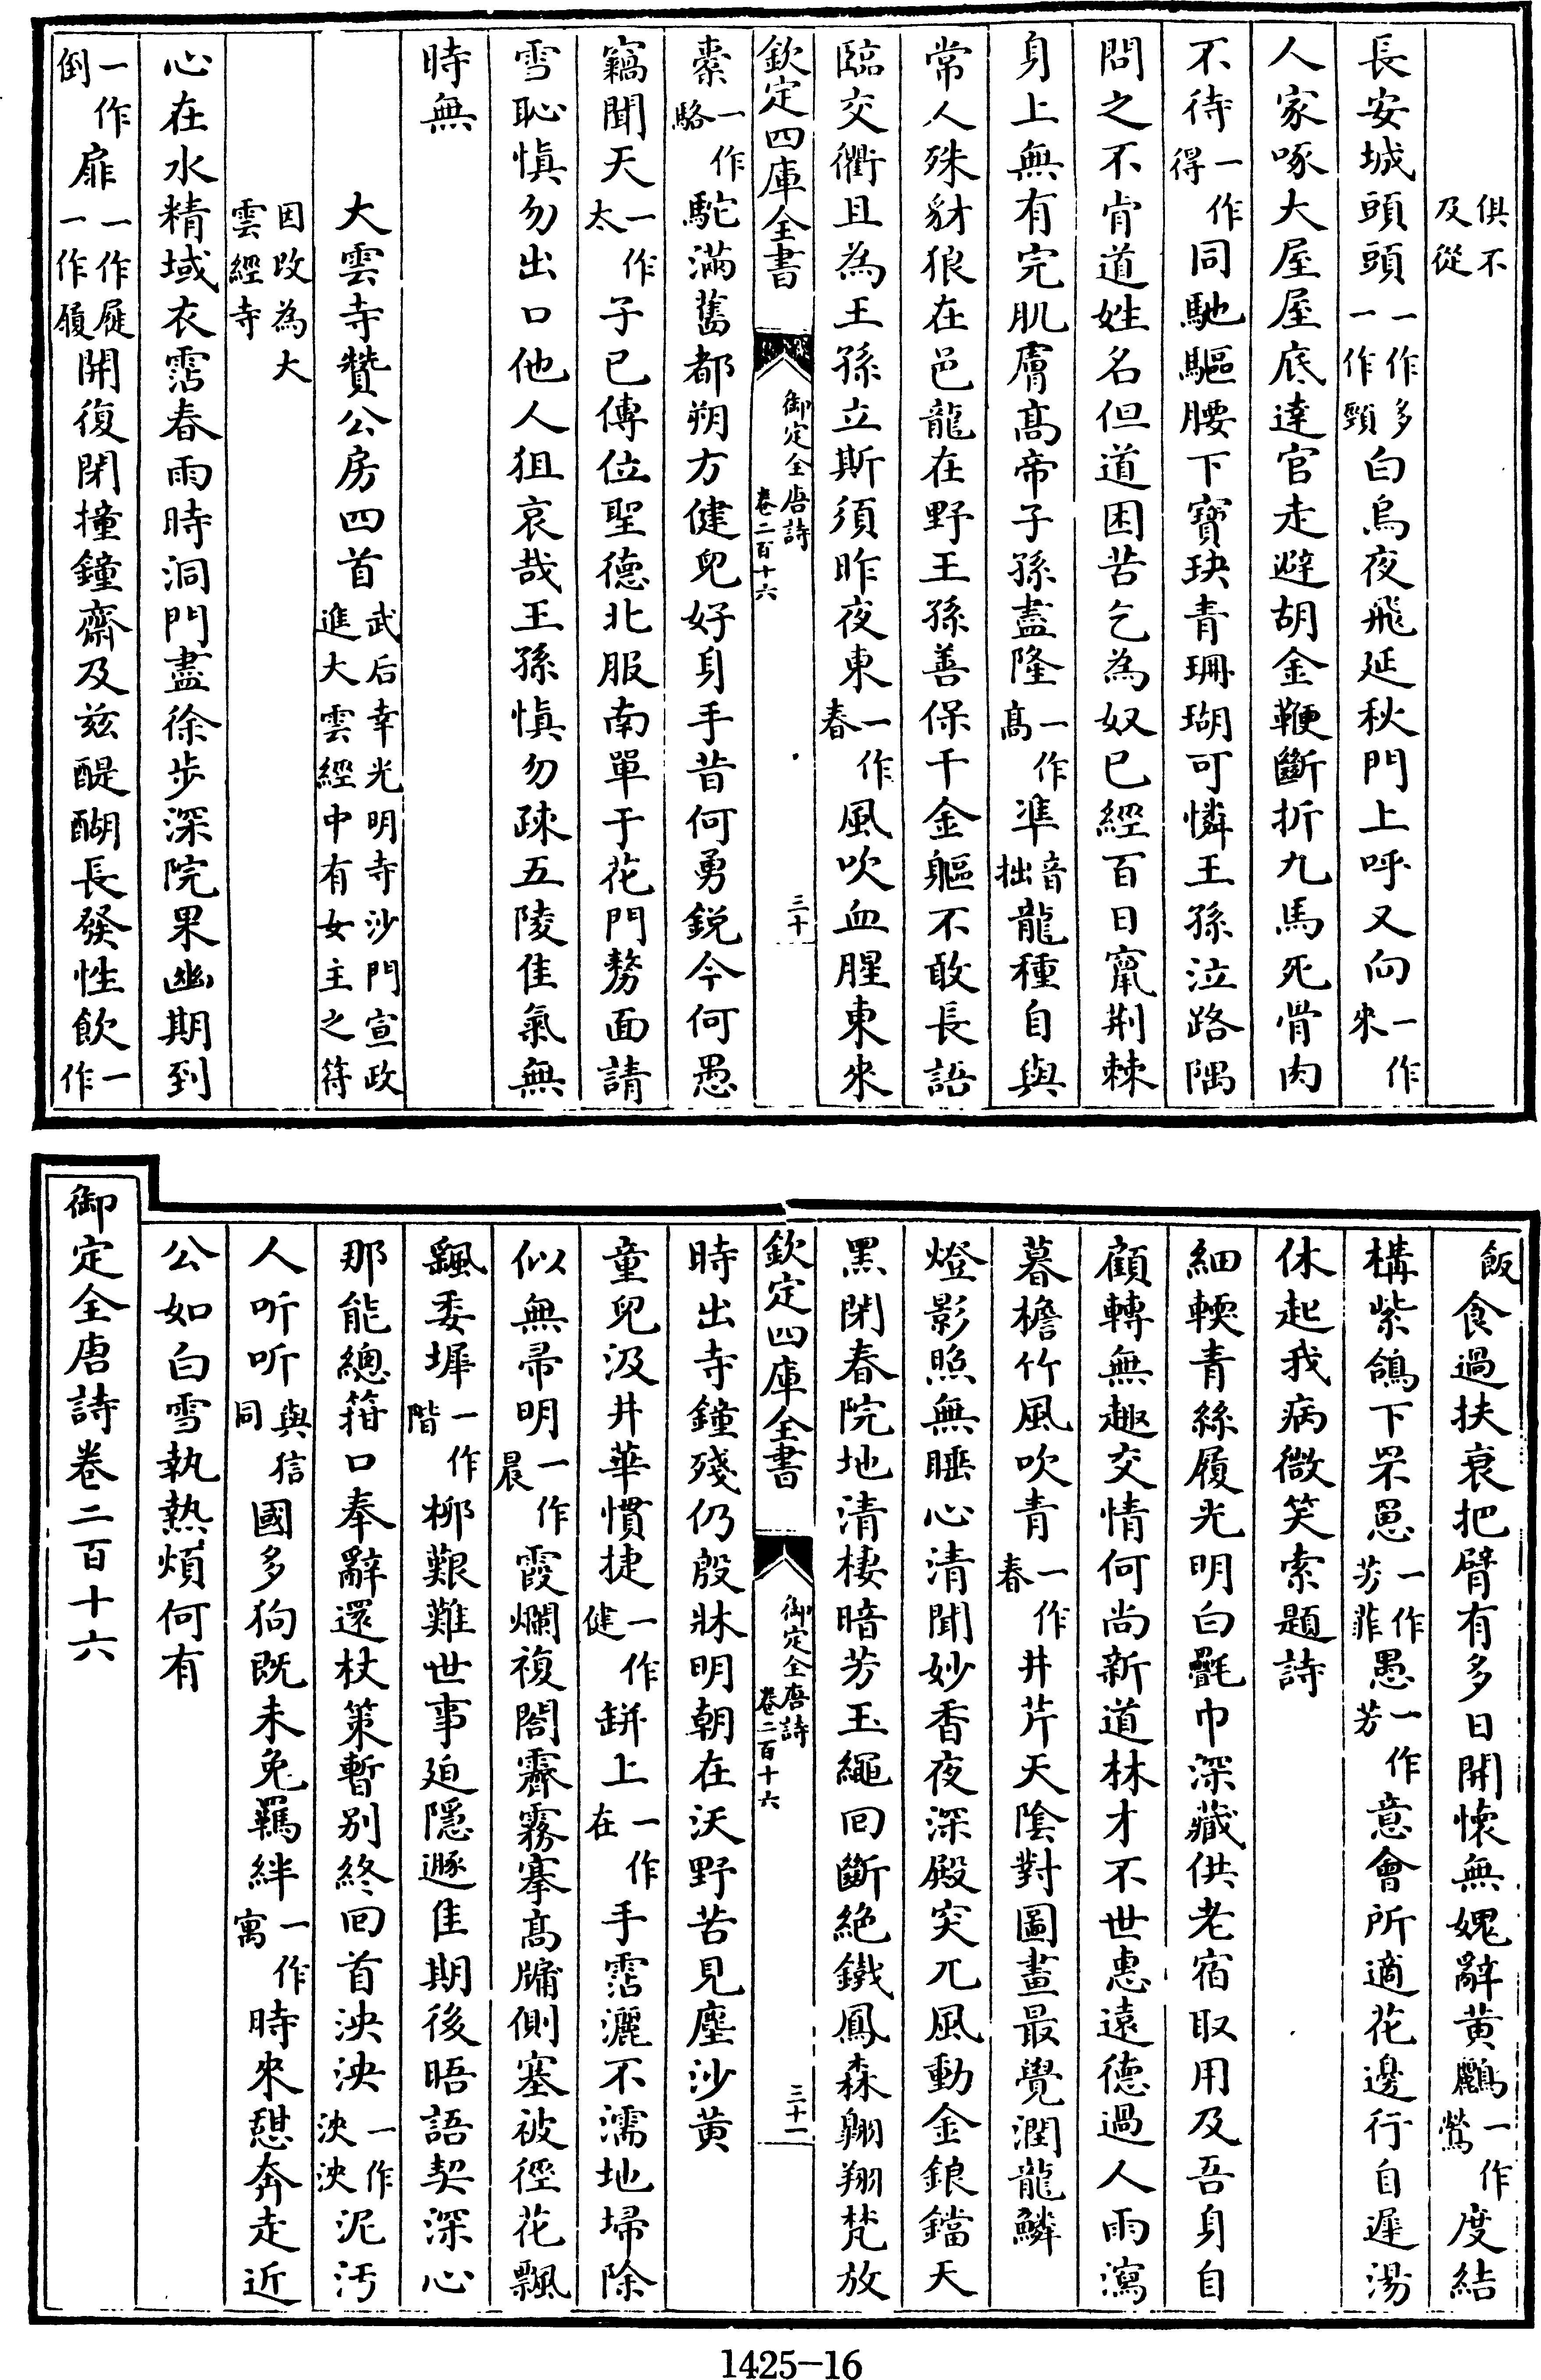 俱不及從
長安城頭頭一作多一作頸白烏夜飛延秋門上呼又向一作來
人家啄大屋屋底達官走避胡金鞭斷折九馬死骨肉
不待一作得同馳驅腰下寶玦青珊瑚可憐王孫泣路隅
問之不肯道姓名但道困苦乞為奴已經百日竄荆棘
身上無有完肌膚髙帝子孫盡隆一作髙凖音拙龍種自與
常人殊豺狼在邑龍在野王孫善保千金軀不敢長語
臨交衢且為王孫立斯須昨夜東一作春風吹血腥東來
欽定四庫全書 御定全唐詩卷二百十六 三十
橐一作駱駝滿舊都朔方健兒好身手昔何勇鋭今何愚
竊聞天一作太子已傳位聖德北服南單于花門剺面請
雪恥愼勿出口他人狙哀哉王孫愼勿疎五陵佳氣無
時無
大雲寺贊公房四首武后幸光明寺沙門宣政進大雲經中有女主之符
因改為大雲經寺
心在水精域衣霑春雨時洞門盡徐步深院果幽期到
一作倒扉一作屣一作履開復閉撞鐘齋及兹醍醐長發性飲一作
飯食過扶衰把臂有多日開懷無媿辭黄鸝一作鶯度結
構紫鴿下罘罳一作芳菲愚一作芳意會所適花邊行自遲湯
休起我病微笑索題詩
細輭青絲履光明白㲲巾深藏供老宿取用及吾身自
顧轉無趣交情何尚新道林才不世惠遠德過人雨瀉
暮檐竹風吹青一作春井芹天陰對圖畫最覺潤龍鱗
燈影照無睡心清聞妙香夜深殿突兀風動金鋃鐺天
黑閉春院地清棲暗芳玉繩回斷絶鐵鳳森翺翔梵放
欽定四庫全書 御定全唐詩卷二百十六 三十一
時出寺鐘殘仍殷牀明朝在沃野苦見塵沙黄
童兒汲井華慣捷一作健缾上一作在手霑灑不濡地埽除
似無帚明一作晨霞爛複閣霽霧搴髙牖側塞被徑花飄
飖委墀一作階柳艱難世事廹隱遯佳期後晤語契深心
那能總箝口奉辭還杖策暫别終回首泱泱一作泱泱泥汚
人听听與㹞同國多狗既未免羈絆一作寓時來憇奔走近
公如白雪執熱煩何有
御定全唐詩卷二百十六
1425-16